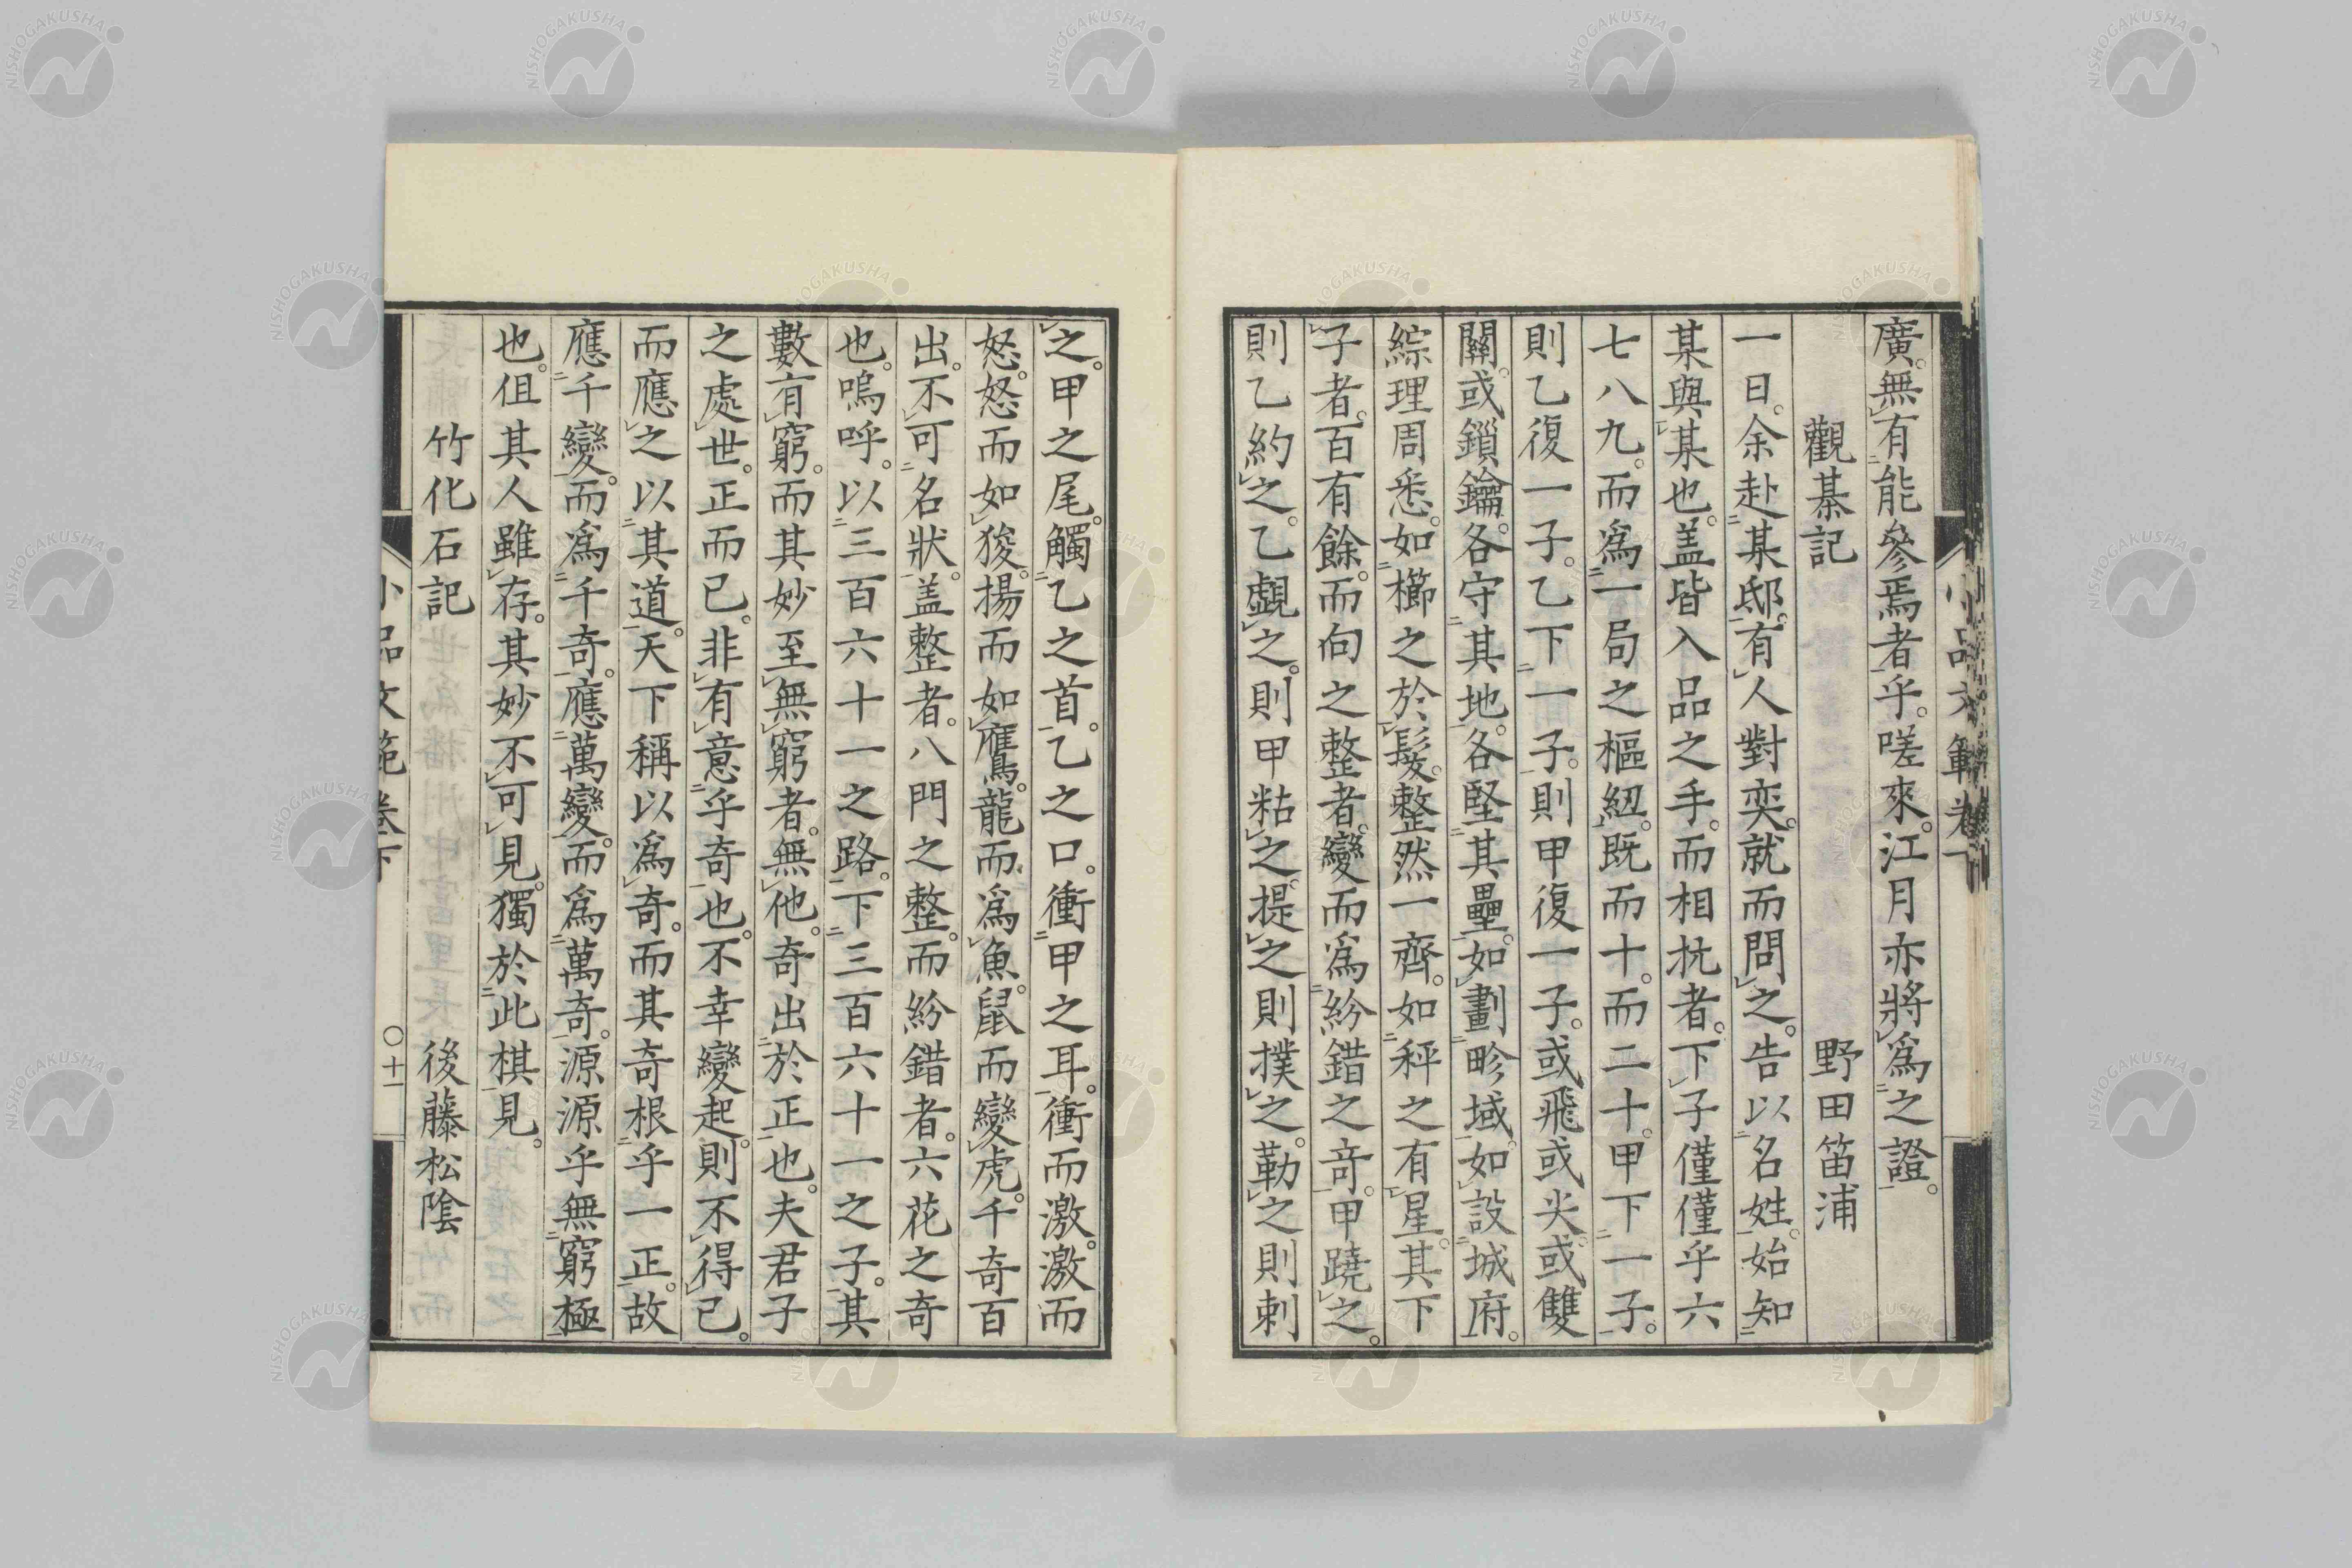 廣。無有能參焉者乎。嗟來。江月亦將爲之證。
觀棊記　野田笛浦
一日。余赴某邸。有人對奕。就而問之。告以名姓。始知
某與某也。盖皆入品之手。而相抗者。下子僅僅乎六
七八九。而爲一局之樞紐。既而十。而二十。甲下一子。
則乙復一子。乙下一子。則甲復一子。或飛或尖或雙
關。或鎖鑰。各守其地。各堅其壘。如劃畛域。如設城府。
綜理周悉。如櫛之於髮。整然一齊。如秤之有星。其下
子者。百有餘。而向之整者。變而爲紛錯之奇。甲蹺之。
則乙約之。乙覷之。則甲粘之。提之則撲之。勒之則刺
之。甲之尾。觸乙之首。乙之口。衝甲之耳。衝而激。激而
怒。怒而如狻。揚而如鷹。龍而爲魚。鼠而變虎。千奇百
出。不可名狀。盖整者。八門之整。而紛錯者。六花之奇
也。嗚呼。以三百六十一之路。下三百六十一之子。其
數有窮。而其妙至無窮者。無他。奇出於正也。夫君子
之處世。正而已。非有意乎奇也。不幸變起。則不得已。
而應之以其道。天下稱以爲奇。而其奇根乎一正。故
應千變。而爲千奇。應萬變。而爲萬奇。源源乎無窮極
也。但其人雖存。其妙不可見。獨於此棋見。
竹化石記　後藤松陰
小品文範卷下　〇十一
NISHOGAKUSHA